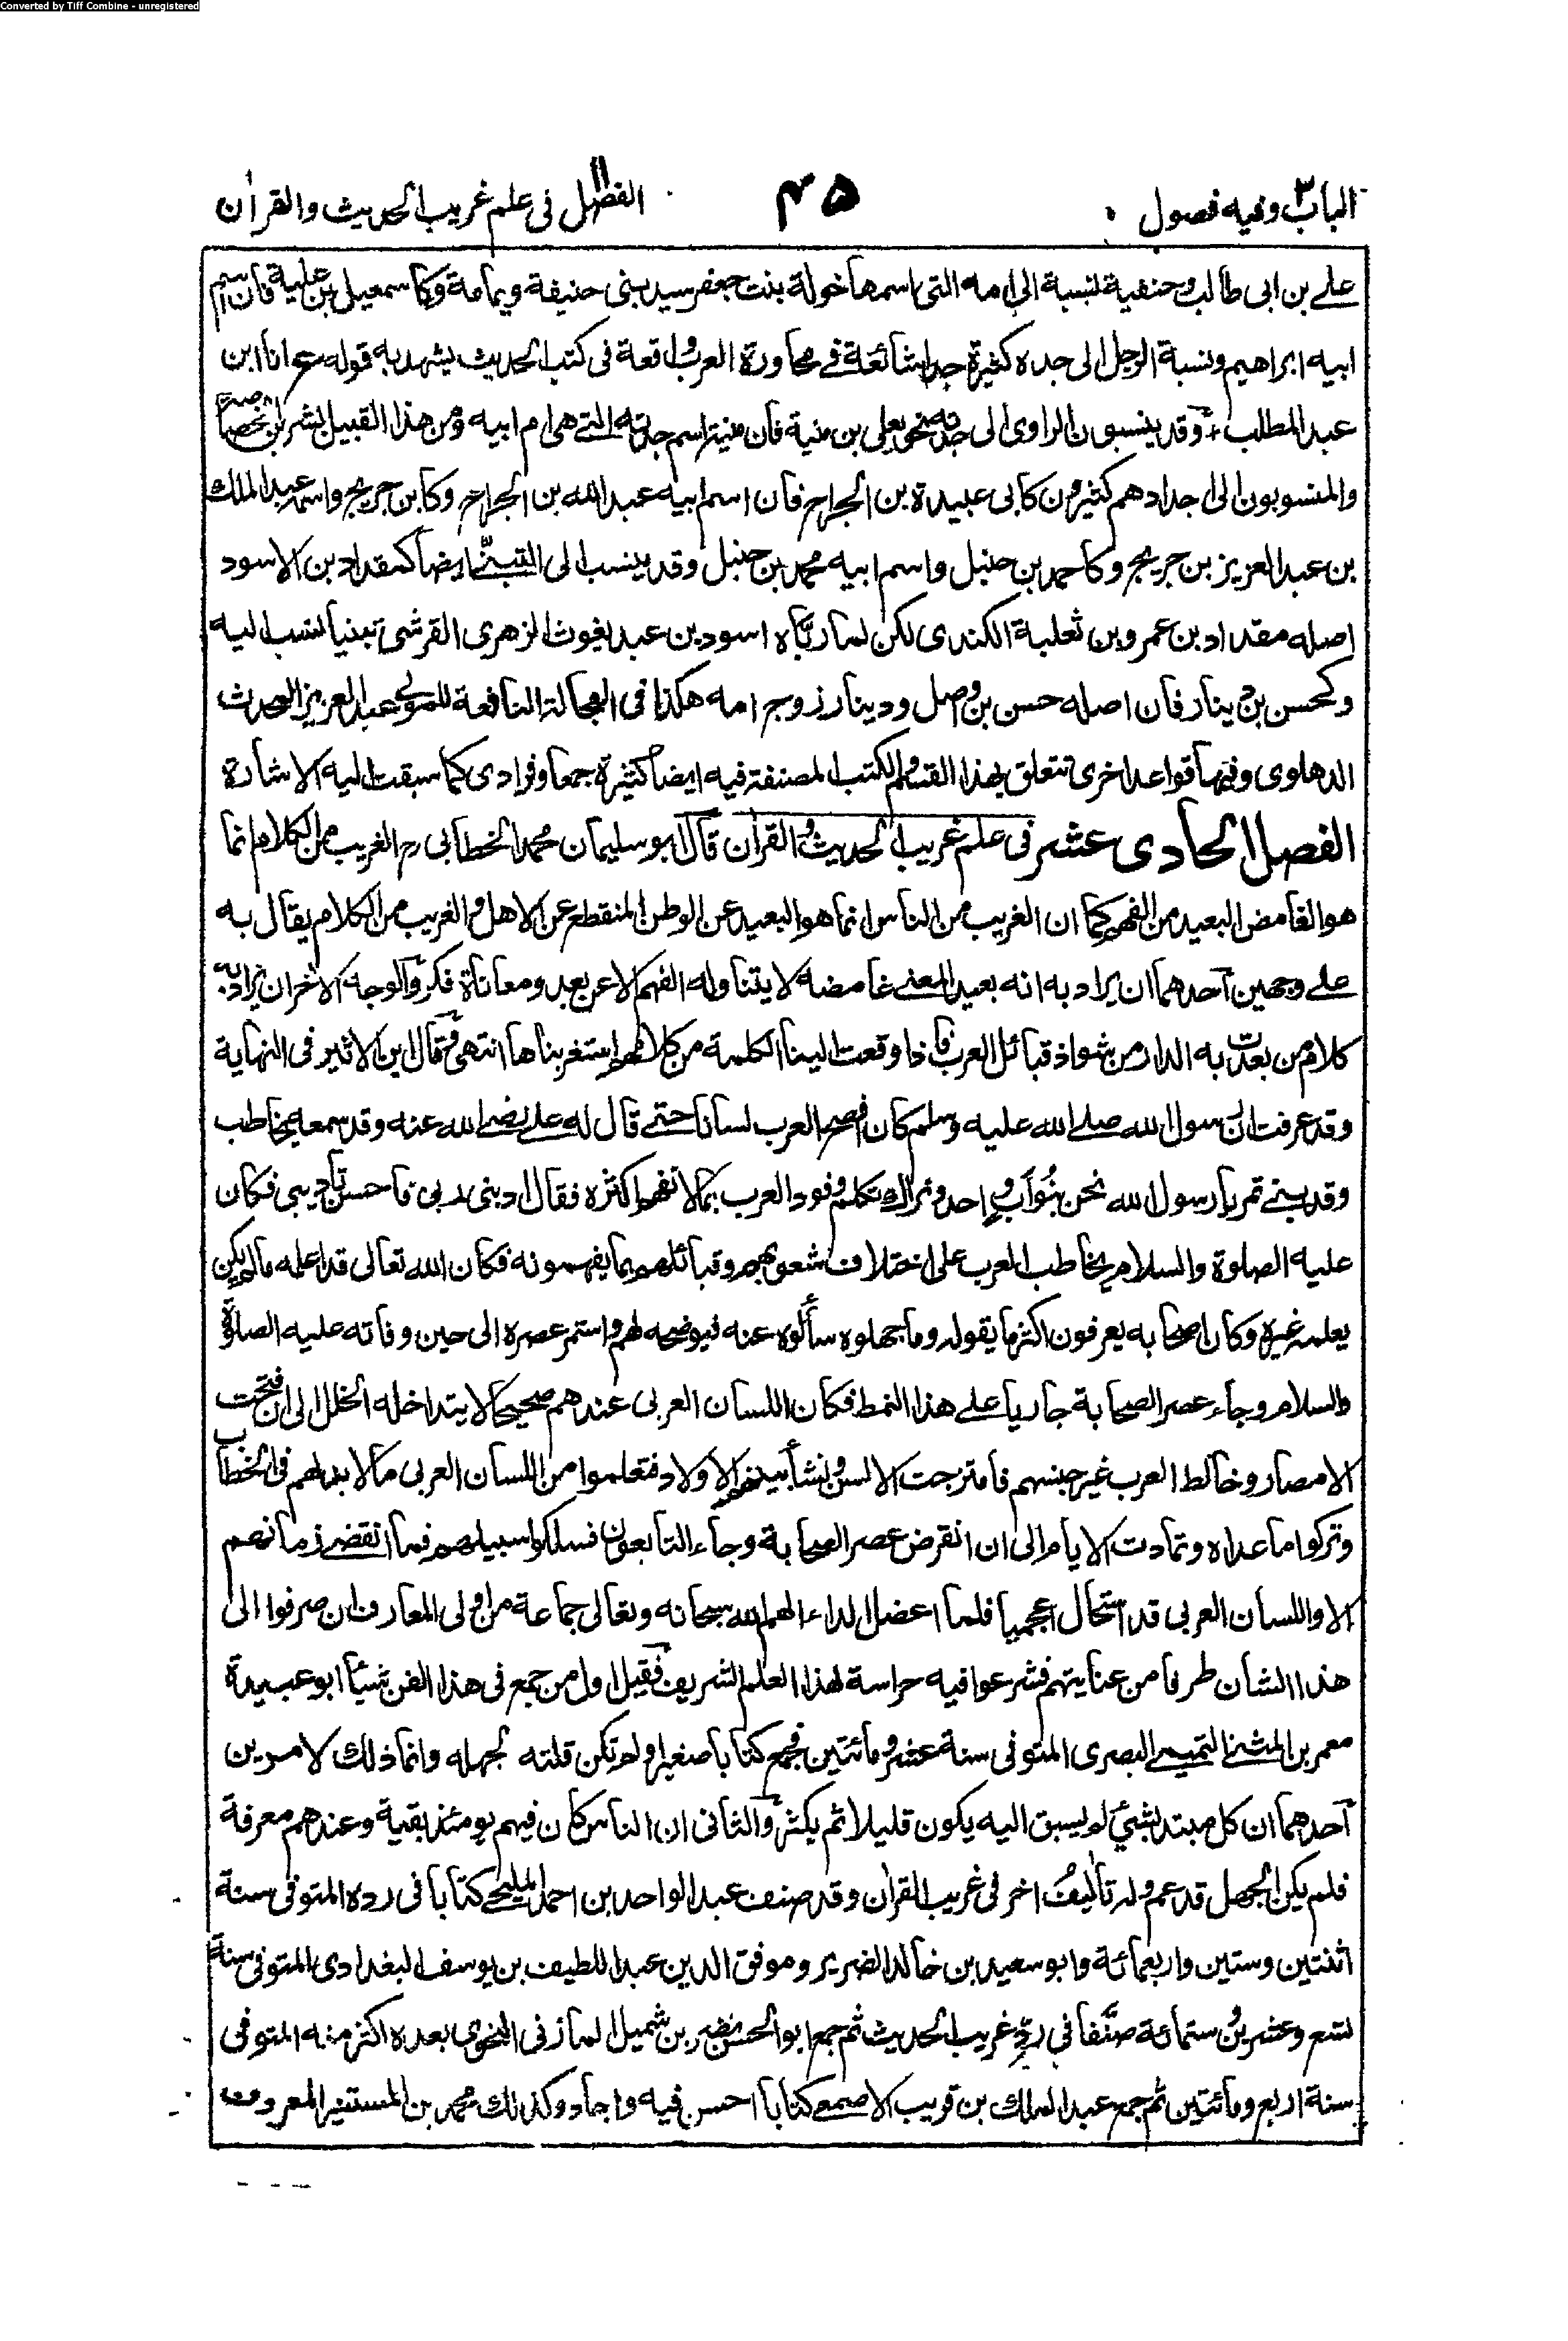 Converted by Tiff Combine - unregistered
الباب ٣ وفيه فصول ٤٥ الفصل ١١ فى علم غريب الحديث والقران
على بن ابى طالب وحنفية نسبة الى امه التى اسمها خولة بنت جعفر سيد بنى حنيفة ويمامة وكاسمعيل بن علية فان اسم
ابيه ابراهيم ونسبة الرجل الى جده كثيرة جدا شائعة فى محاورة العرب واقعة فى كتب الحديث يشهد به قوله صلعم انا ابن
عبد المطلب وقد ينسبون الراوى الى جدته نحو يعلى بن منية فان منية اسم جدته التى هى ام ابيه ومن هذا القبيل بشر بن خصاصية
والمنسوبون الى اجدادهم كثيرون كابى عبيدة بن الجراح فان اسم ابيه عبد الله بن الجراح وكابن جريج واسمه عبد الملك
بن عبد العزيز بن جريج وكاحمد بن حنبل واسم ابيه محمد بن حنبل وقد ينسب الى التبنى ايضا كمقداد بن الاسود
اصله مقداد بن عمرو بن ثعلبة الكندى لكن لما رباه اسود بن عبد يغوث الزهرى القرشى تبنيا نسب اليه
وكحسن بن دينار فان اصله حسن بن واصل ودينار زوج امه هكذا فى العجالة النافعة للمولى عبد العزيز المحدث
الدهلوى وفيها قواعد اخرى تتعلق بهذا القسم والكتب المصنفة فيه ايضا كثيرة جمعا وفرادى كما سبقت اليه الاشارة
الفصل الحادى عشر فى علم غريب الحديث والقران قال ابو سليمان محمد الخطابى رح الغريب من الكلام انما
هو الغامض البعيد من الفهم كما ان الغريب من الناس انما هو البعيد عن الوطن المنقطع عن الاهل والغريب من الكلام يقال به
على وجهين احدهما ان يراد به انه بعيد المعنى غامضه لا يتناوله الفهم الا عن بعد ومعاناة فكر والوجه الاخر ان يراد به
كلام من بعدت به الدار من شواذ قبائل العرب فاذا وقعت الينا الكلمة من كلامهم استغربناها انتهى وقال ابن الاثير فى النهاية
وقد عرفت ان رسول الله صلى الله عليه وسلم كان افصح العرب لسانا حتى قال له على رضى الله عنه وقد سمعه يخاطب
وفد بنى نهد يا رسول الله نحن بنو اب واحد ونراك تكلم وفود العرب بما لا نفهم اكثره فقال ادبنى ربى فاحسن تاديبى فكان
عليه الصلوة والسلام يخاطب العرب على اختلاف شعوبهم وقبائلهم بما يفهمونه فكان الله تعالى قد اعلمه ما لم يكن
يعلمه غيره وكان اصحابه يعرفون اكثر ما يقوله وما جهلوه سألوه عنه فيوضحه لهم واستمر عصره الى حين وفاته عليه الصلوة
والسلام وجاء عصر الصحابة جاريا على هذا النمط فكان اللسان العربى عندهم صحيحا لا يتداخله الخلل الى ان فتحت
الامصار وخالط العرب غير جنسهم فامتزجت الالسن ونشأ بينهم الاولاد فتعلموا من اللسان العربى ما لا بد لهم فى الخطاب
وتركوا ما عداه وتمادت الايام الى ان انقرض عصر الصحابة وجاء التابعون فسلكوا سبيلهم فما انقضى زمانهم
الا واللسان العربى قد استحال اعجميا فلما اعضل الداء الهم الله سبحانه وتعالى جماعة من اولى المعارف ان صرفوا الى
هذا الشان طرفا من عنايتهم فشرعوا فيه حراسة لهذا العلم الشريف فقيل اول من جمع فى هذا الفن شيئا ابو عبيدة
معمر بن المثنى التميمى البصرى المتوفى سنة عشر ومائتين فجمع كتابا صغيرا ولم تكن قلته لجهله وانما ذلك لامرين
احدهما ان كل مبتدئ بشىء لم يسبق اليه يكون قليلا ثم يكثر والثانى ان الناس كان فيهم يومئذ بقية وعندهم معرفة
فلم يكن الجهل قد عم وله تأليف اخر فى غريب القران وقد صنف عبد الواحد بن احمد المليحى كتابا فى رده المتوفى سنة
اثنتين وستين واربعمائة وابو سعيد بن خالد الضرير وموفق الدين عبد اللطيف بن يوسف البغدادى المتوفى سنة
تسع وعشرين وستمائة صنفا فى رد غريب الحديث ثم جمع ابو الحسن نضر بن شميل المازنى النحوى بعده اكثر منه المتوفى
سنة اربع ومائتين ثم جمع عبد الملك بن قريب الاصمعى كتابا احسن فيه واجاد وكذلك محمد بن المستنير المعروف